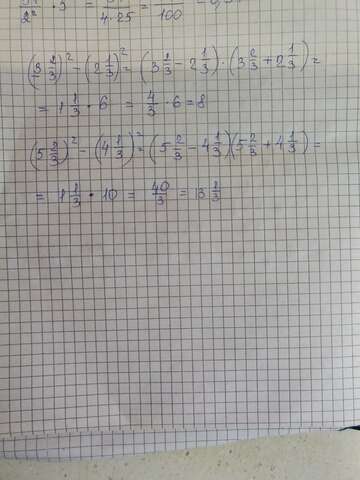 2² · 3 = 4·25 = 100
(3 2/3)² - (2 1/3)² = (3 2/3 - 2 1/3) · (3 2/3 + 2 1/3) =
= 1 1/3 · 6 = 4/3 · 6 = 8
(5 2/3)² - (4 1/3)² = (5 2/3 - 4 1/3)(5 2/3 + 4 1/3) =
= 1 1/3 · 10 = 40/3 = 13 1/3